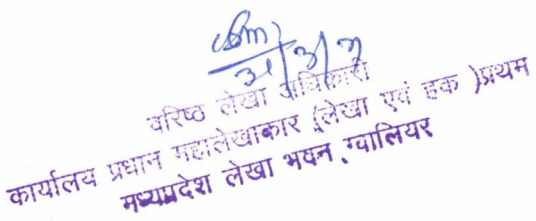 वरिष्ठ लेखा अधिकारी
कार्यालय प्रधान महालेखाकार (लेखा एवं हक )प्रथम
मध्यप्रदेश लेखा भवन, ग्वालियर